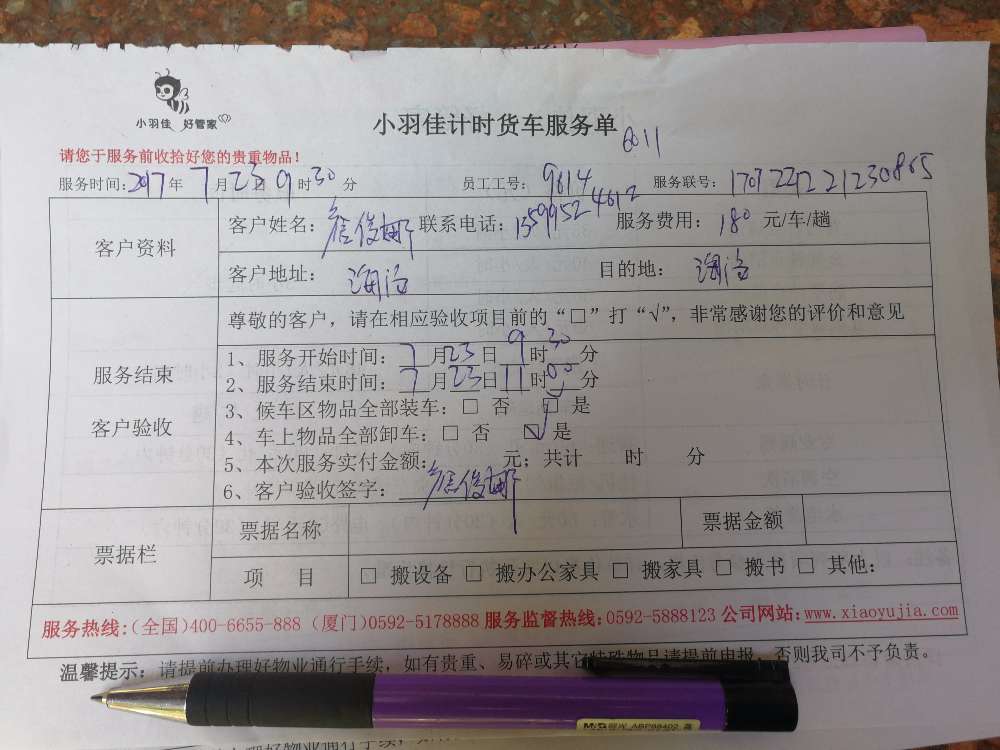 小羽佳 好管家
小羽佳计时货车服务单
6011
请您于服务前收拾好您的贵重物品！
服务时间：2017年 7月23日9时30分 员工工号：9614 服务联号：
客户资料
客户姓名：詹俊娜 联系电话：13599524612 服务费用：180 元/车/趟
客户地址：海沧 目的地：海沧
服务结束
客户验收
尊敬的客户，请在相应验收项目前的“□”打“√”，非常感谢您的评价和意见
1、服务开始时间：7月23日9时30分
2、服务结束时间：7月23日11时00分
3、候车区物品全部装车：□ 否 □ 是
4、车上物品全部卸车：□ 否 □ 是
5、本次服务实付金额： 元；共计 时 分
6、客户验收签字：詹俊娜
票据栏
票据名称 票据金额
项 目 □ 搬设备 □ 搬办公家具 □ 搬家具 □ 搬书 □ 其他：
服务热线：(全国)400-6655-888 (厦门)0592-5178888 服务监督热线：0592-5888123 公司网站：www.xiaoyujia.com
温馨提示：请提前办理好物业通行手续，如有贵重、易碎或其它特殊物品请提前申报，否则我司不予负责。
M&G 晨光